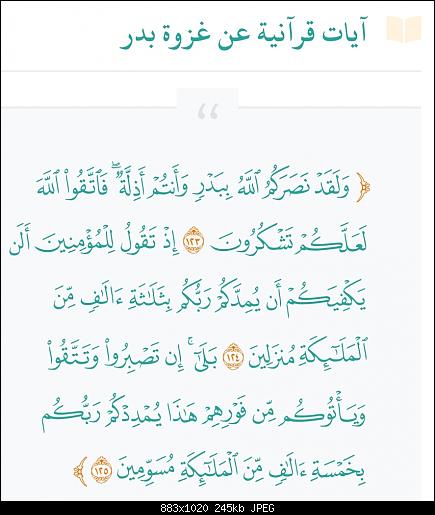 آيات قرآنية عن غزوة بدر
﴿ وَلَقَدْ نَصَرَكُمُ ٱللَّهُ بِبَدْرٍ وَأَنتُمْ أَذِلَّةٌ ۖ فَٱتَّقُوا۟ ٱللَّهَ
لَعَلَّكُمْ تَشْكُرُونَ ١٢٣ إِذْ تَقُولُ لِلْمُؤْمِنِينَ أَلَن
يَكْفِيَكُمْ أَن يُمِدَّكُمْ رَبُّكُم بِثَلَـٰثَةِ ءَالَـٰفٍ مِّنَ
ٱلْمَلَـٰٓئِكَةِ مُنزَلِينَ ١٢٤ بَلَىٰٓ ۚ إِن تَصْبِرُوا۟ وَتَتَّقُوا۟
وَيَأْتُوكُم مِّن فَوْرِهِمْ هَـٰذَا يُمْدِدْكُمْ رَبُّكُم
بِخَمْسَةِ ءَالَـٰفٍ مِّنَ ٱلْمَلَـٰٓئِكَةِ مُسَوِّمِينَ ١٢٥ ﴾
883x1020 245kb JPEG